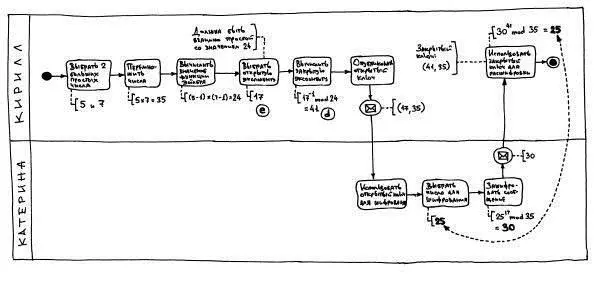 КИРИЛЛ
Должна быть
взаимно простой
со значением 24
Закрытый
ключ
(41, 35)
30⁴¹ mod 35 = 25
Выбрать 2
больших
простых
числа
5 и 7
Перемно-
жить
числа
5×7=35
Вычислить
значение
функции
Эйлера
(5-1)×(7-1)=24
Выбрать
открытую
экспоненту
17
e
Вычислить
закрытую
экспоненту
17⁻¹ mod 24
= 41
d
Опубликовать
открытый
ключ
(17,35)
Использовать
закрытый
ключ для
расшифровки
30
КАТЕРИНА
Использовать
открытый ключ
для шифрования
Выбрать
число для
шифрования
25
Зашифро-
вать сооб-
щение
25¹⁷ mod 35
= 30